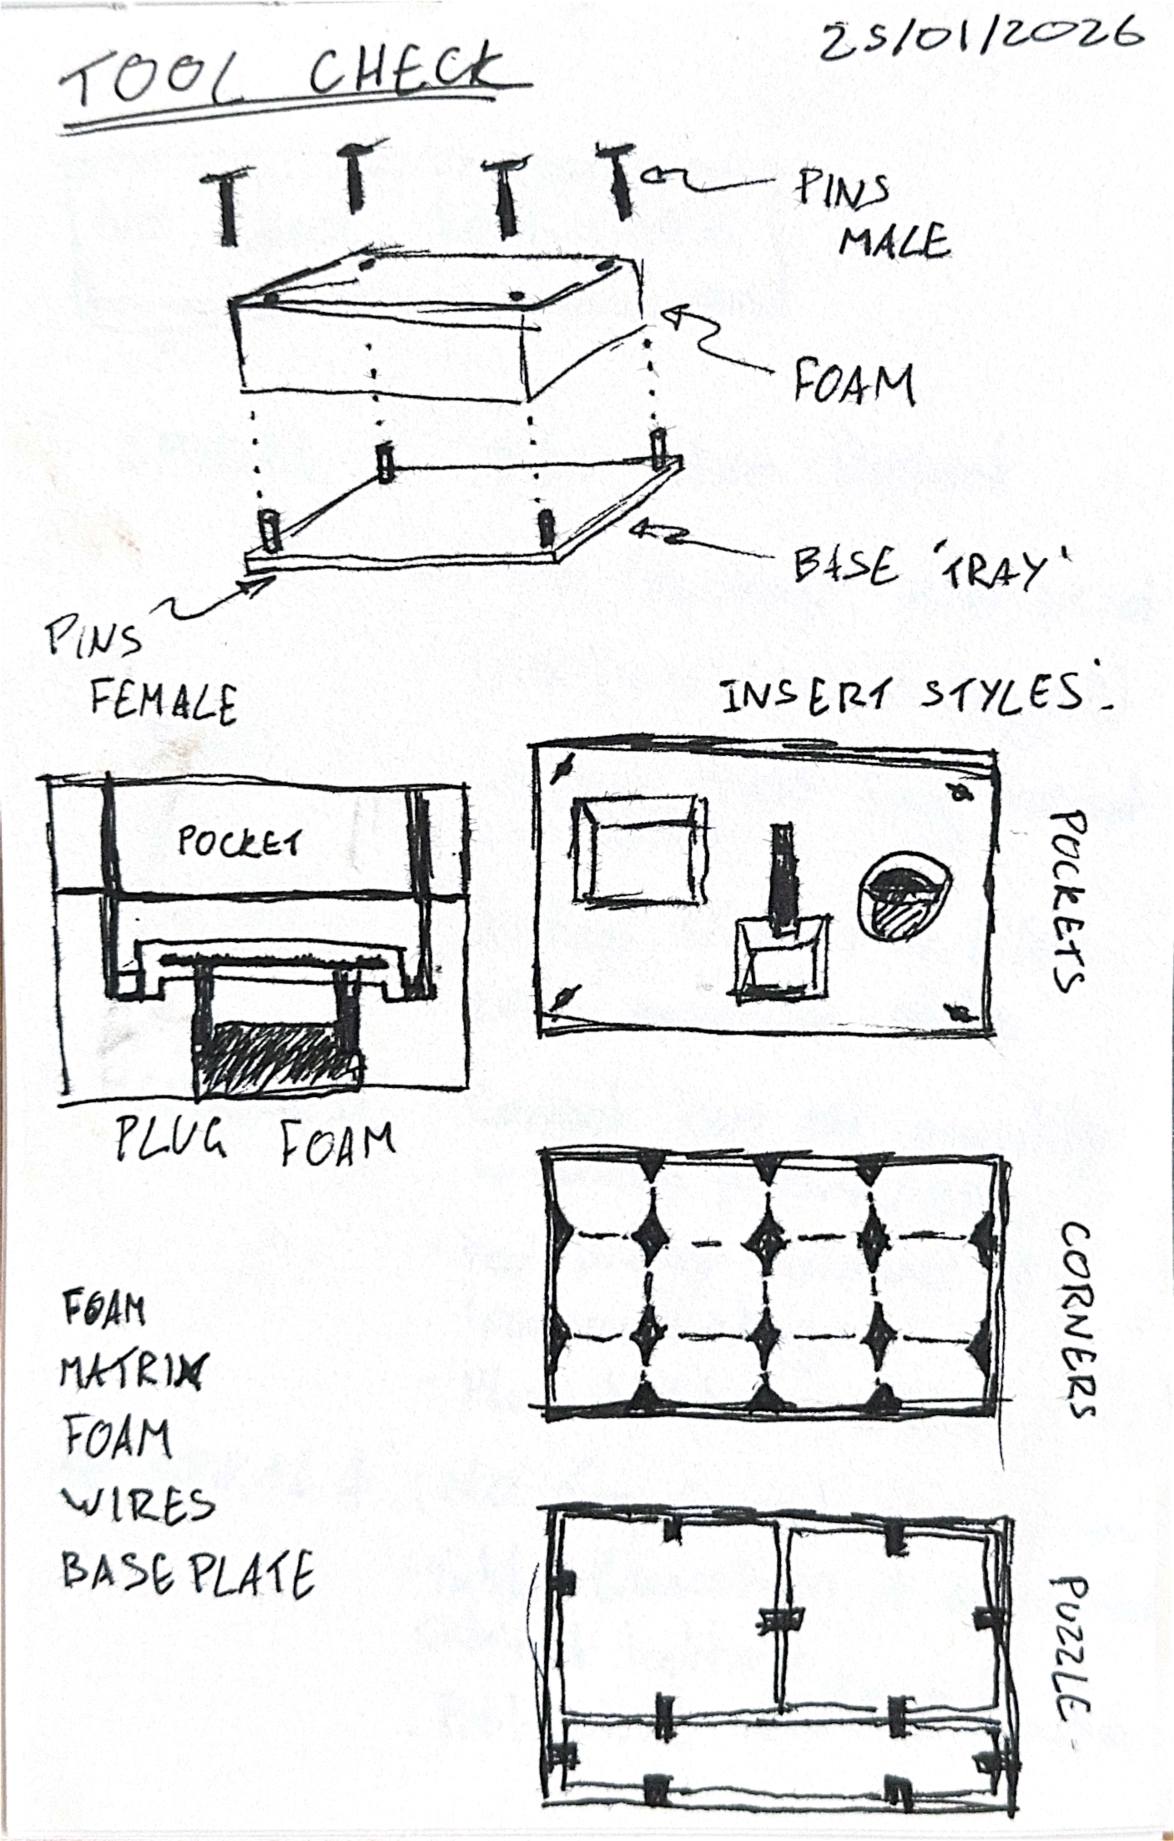 TOOL CHECK
25/01/2026
PINS
MALE
FOAM
BASE 'TRAY'
PINS
FEMALE
INSERT STYLES:
POCKET
POCKETS
PLUG FOAM
CORNERS
FOAM
MATRIX
FOAM
WIRES
BASE PLATE
PUZZLE